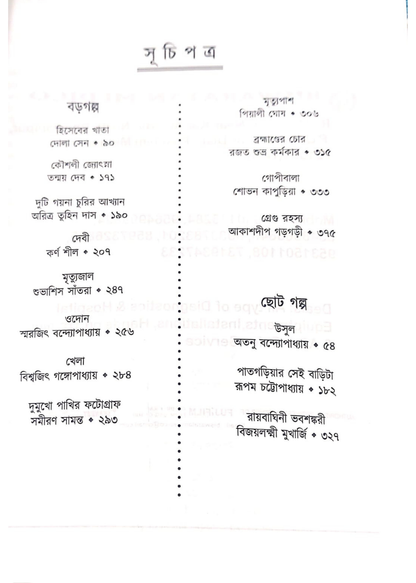 সূচিপত্র
বড়গল্প
হিসেবের খাতা
দোলা সেন • ৯০
কৌশলী জ্যোৎস্না
তন্ময় দেব • ১৭১
দুটি গয়না চুরির আখ্যান
অরিত্র তুহিন দাস • ১৯০
দেবী
কর্ণ শীল • ২০৭
মৃত্যুজাল
শুভাশিস সাঁতরা • ২৪৭
ওদোন
স্মরজিৎ বন্দ্যোপাধ্যায় • ২৫৬
খেলা
বিশ্বজিৎ গঙ্গোপাধ্যায় • ২৮৪
দুমুখো পাখির ফটোগ্রাফ
সমীরণ সামন্ত • ২৯৩
মৃত্যুপাশ
পিয়ালী ঘোষ • ৩০৬
ব্রহ্মাণ্ডের চোর
রজত শুভ্র কর্মকার • ৩১৫
গোপীবালা
শোভন কাপুড়িয়া • ৩৩৩
গ্রেণ্ড রহস্য
আকাশদীপ গড়গড়ী • ৩৭৫
ছোট গল্প
উসুল
অতনু বন্দ্যোপাধ্যায় • ৫৪
পাতগড়িয়ার সেই বাড়িটা
রূপম চট্টোপাধ্যায় • ১৮২
রায়বাঘিনী ভবশঙ্করী
বিজয়লক্ষ্মী মুখার্জি • ৩২৭